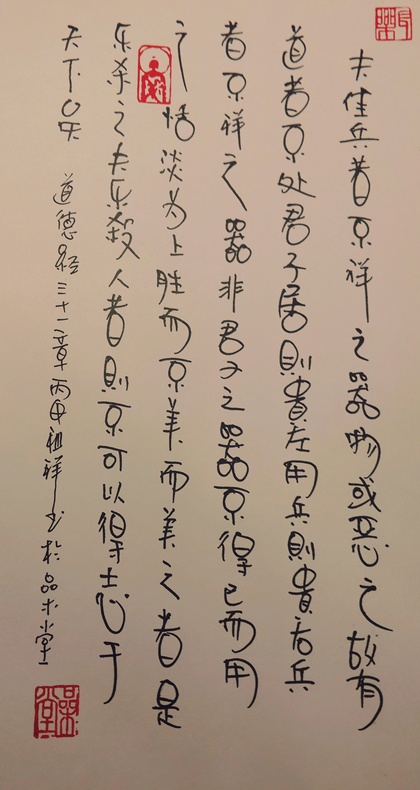 夫佳兵者不祥之器物或恶之故有
道者不处君子居則貴左用兵則貴右兵
者不祥之器非君子之器不得已而用
之恬淡为上胜而不美而美之者是
乐杀之夫乐殺人者則不可以得志于
天下矣
道德经三十一章丙申祖祥书於品木堂
品木堂